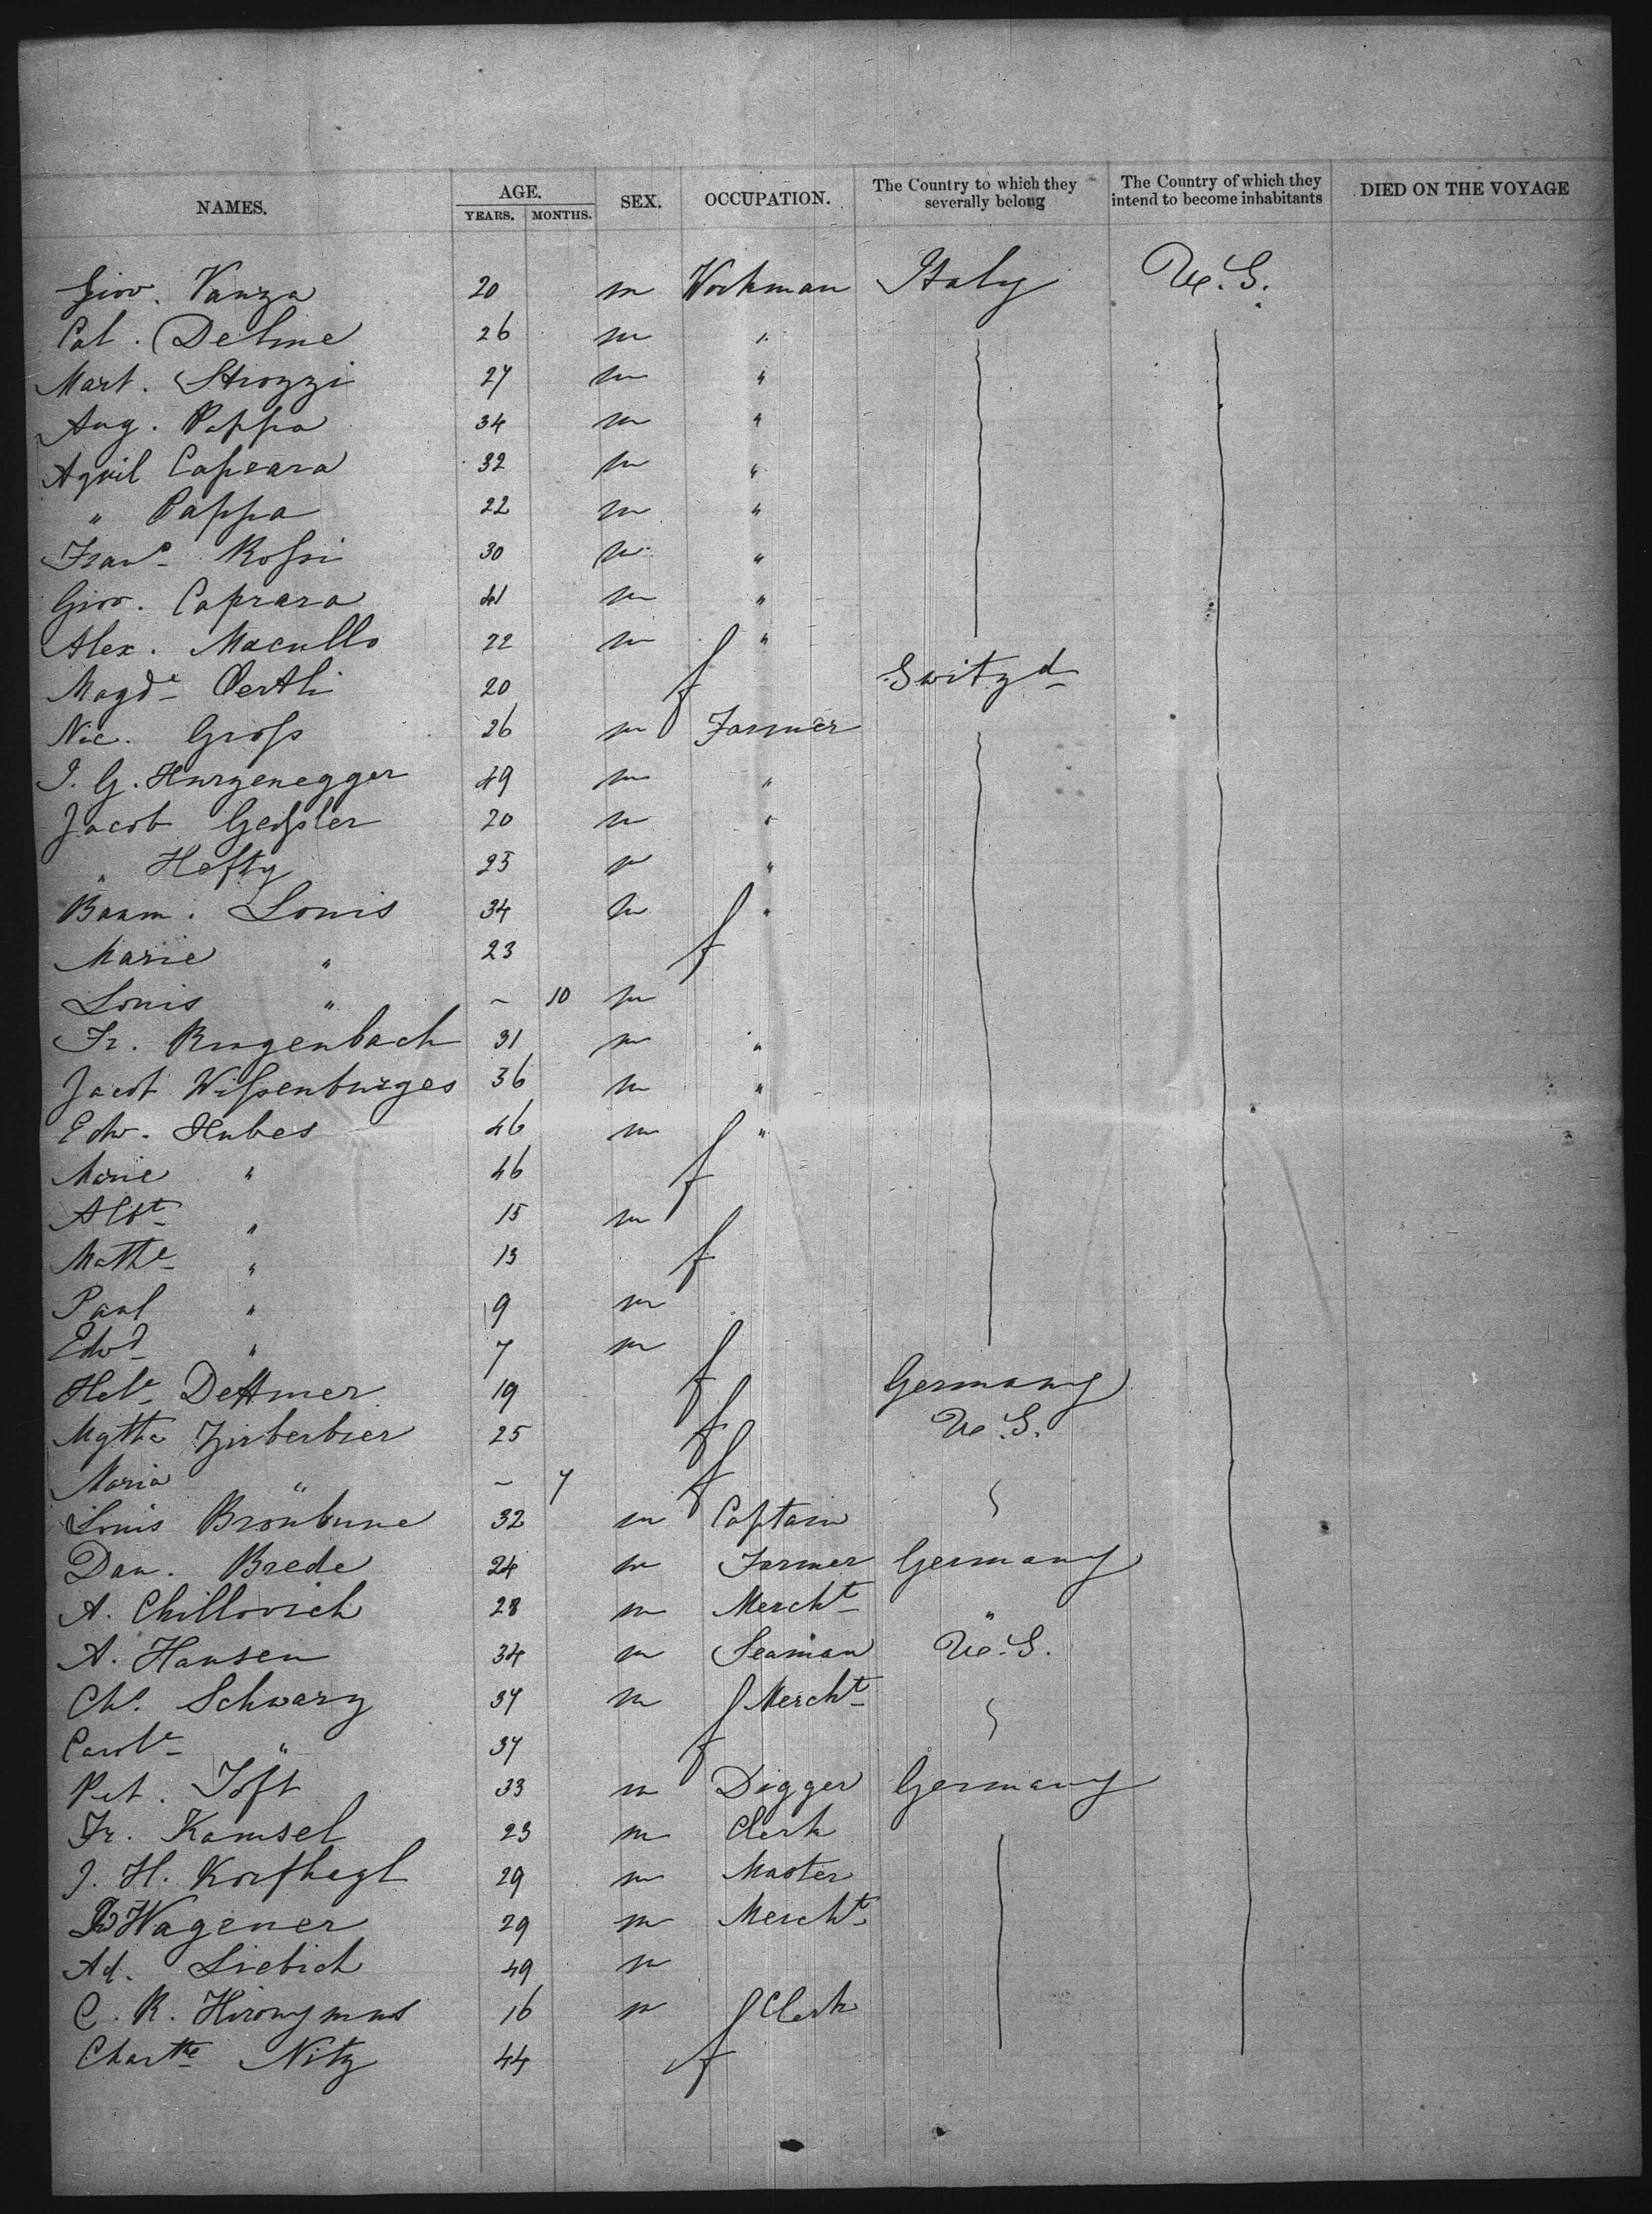 NAMES. AGE. YEARS. MONTHS. SEX. OCCUPATION. The Country to which they severally belong The Country of which they intend to become inhabitants DIED ON THE VOYAGE
Giov. Vanza 20 m Workman Italy U.S.
Cat. Delme 26 m "
Mart. Strozzi 27 m "
Aug. Pappa 34 m "
Aquil Capeara 32 m "
" Pappa 22 m "
Franc Rossi 30 m "
Giov. Caprara 41 m "
Alex. Macullo 22 m "
Magde Oertli 20 f Switzd
Nic. Gross 26 m Farmer
J. G. Hurzenegger 49 m "
Jacob Geissler 20 m "
" Hefty 25 m "
Baum. Louis 34 m "
Marie " 23 f
Louis " ~ 10 m
Fr. Rugenbach 31 m "
Jacob Wissenburges 36 m "
Edw. Hubes 46 m "
Marie " 46 f
Albt " 15 m
Mathe " 13 f
Paul " 9 m
Edwd " 7 m
Hele Dettmer 19 f Germany
Mgtha Zirberbier 25 f U.S.
Maria " ~ 7 f
Louis Bronbune 32 m Captain
Dan. Brede 24 m Farmer Germany
A. Chillovich 28 m Mercht "
A. Hansen 34 m Seaman U.S.
Chs. Schwarz 37 m Mercht
Carole " 37 f
Pet. Toft 33 m Digger Germany
Fr. Kamsel 23 m Clerk
J. H. Korfhagl 29 m Master
Wagener 29 m Mercht
Ad. Liebich 49 m
C. R. Hironymus 16 m Clerk
Chartte Nitz 44 f